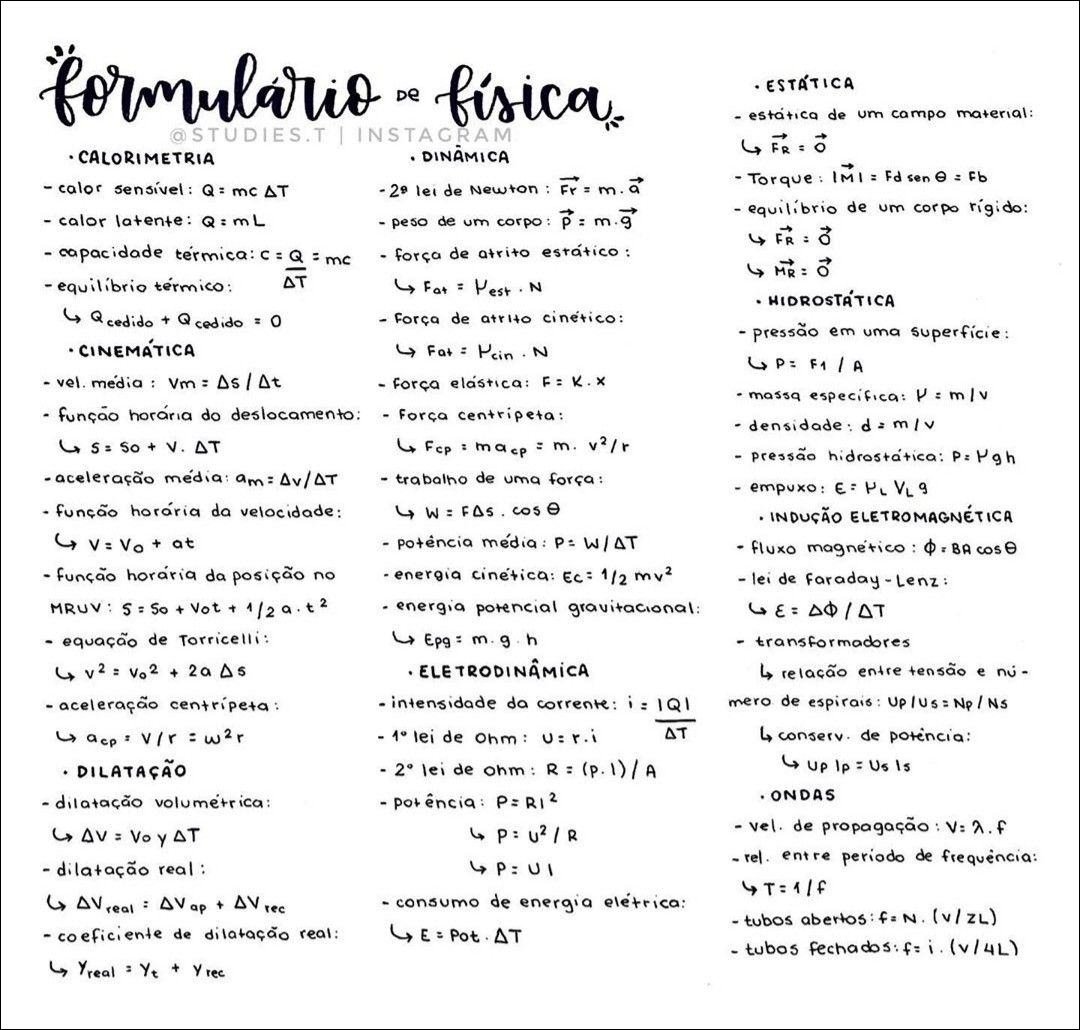 formulário DE física
@STUDIES.T | INSTAGRAM
· CALORIMETRIA
- calor sensível: Q = mc ΔT
- calor latente: Q = mL
- capacidade térmica: c = Q/ΔT = mc
- equilíbrio térmico:
↳ Qcedido + Qcedido = 0
· CINEMÁTICA
- vel. média : Vm = Δs / Δt
- função horária do deslocamento:
↳ S = So + V. ΔT
- aceleração média: am = Δv/ΔT
- função horária da velocidade:
↳ V = Vo + at
- função horária da posição no
MRUV: S = So + Vot + 1/2 a . t²
- equação de Torricelli:
↳ v² = vo² + 2a Δs
- aceleração centrípeta:
↳ acp = V/r = w²r
· DILATAÇÃO
- dilatação volumétrica:
↳ ΔV = Vo y ΔT
- dilatação real :
↳ ΔVreal = ΔVap + ΔVrec
- coeficiente de dilatação real:
↳ Yreal = Yt + Yrec
· DINÂMICA
- 2ª lei de Newton : F⃗r = m. a⃗
- peso de um corpo: p⃗ = m. g⃗
- força de atrito estático :
↳ Fat = μest . N
- Força de atrito cinético:
↳ Fat = μcin . N
- força elástica: F = K . x
- Força centrípeta:
↳ Fcp = macp = m. v²/r
- trabalho de uma força:
↳ W = FΔs . cos θ
- potência média : P = W/ΔT
- energia cinética: Ec = 1/2 mv²
- energia potencial gravitacional:
↳ Epg = m. g. h
· ELETRODINÂMICA
- intensidade da corrente: i = |Q|/ΔT
- 1ª lei de Ohm : U = r . i
- 2ª lei de ohm : R = (p. l) / A
- potência: P = RI²
↳ P = U² / R
↳ P = U I
- consumo de energia elétrica:
↳ E = Pot . ΔT
· ESTÁTICA
- estática de um campo material:
↳ F⃗R = 0⃗
- Torque : |M⃗| = Fd sen θ = Fb
- equilíbrio de um corpo rígido:
↳ F⃗R = 0⃗
↳ M⃗R = 0⃗
· HIDROSTÁTICA
- pressão em uma superfície:
↳ P = F1 / A
- massa específica: μ = m/v
- densidade: d = m/v
- pressão hidrostática: P = μgh
- empuxo: E = μL VL g
· INDUÇÃO ELETROMAGNÉTICA
- fluxo magnético : Φ = BA cos θ
- lei de Faraday - Lenz :
↳ ε = ΔΦ / ΔT
- transformadores
↳ relação entre tensão e nú-
mero de espirais: Up/Us = Np/Ns
↳ conserv. de potência:
↳ Up Ip = Us Is
· ONDAS
- vel. de propagação : V = λ. f
- rel. entre período de frequência:
↳ T = 1/f
- tubos abertos: f = N. (v/2L)
- tubos fechados: f = i. (v/4L)